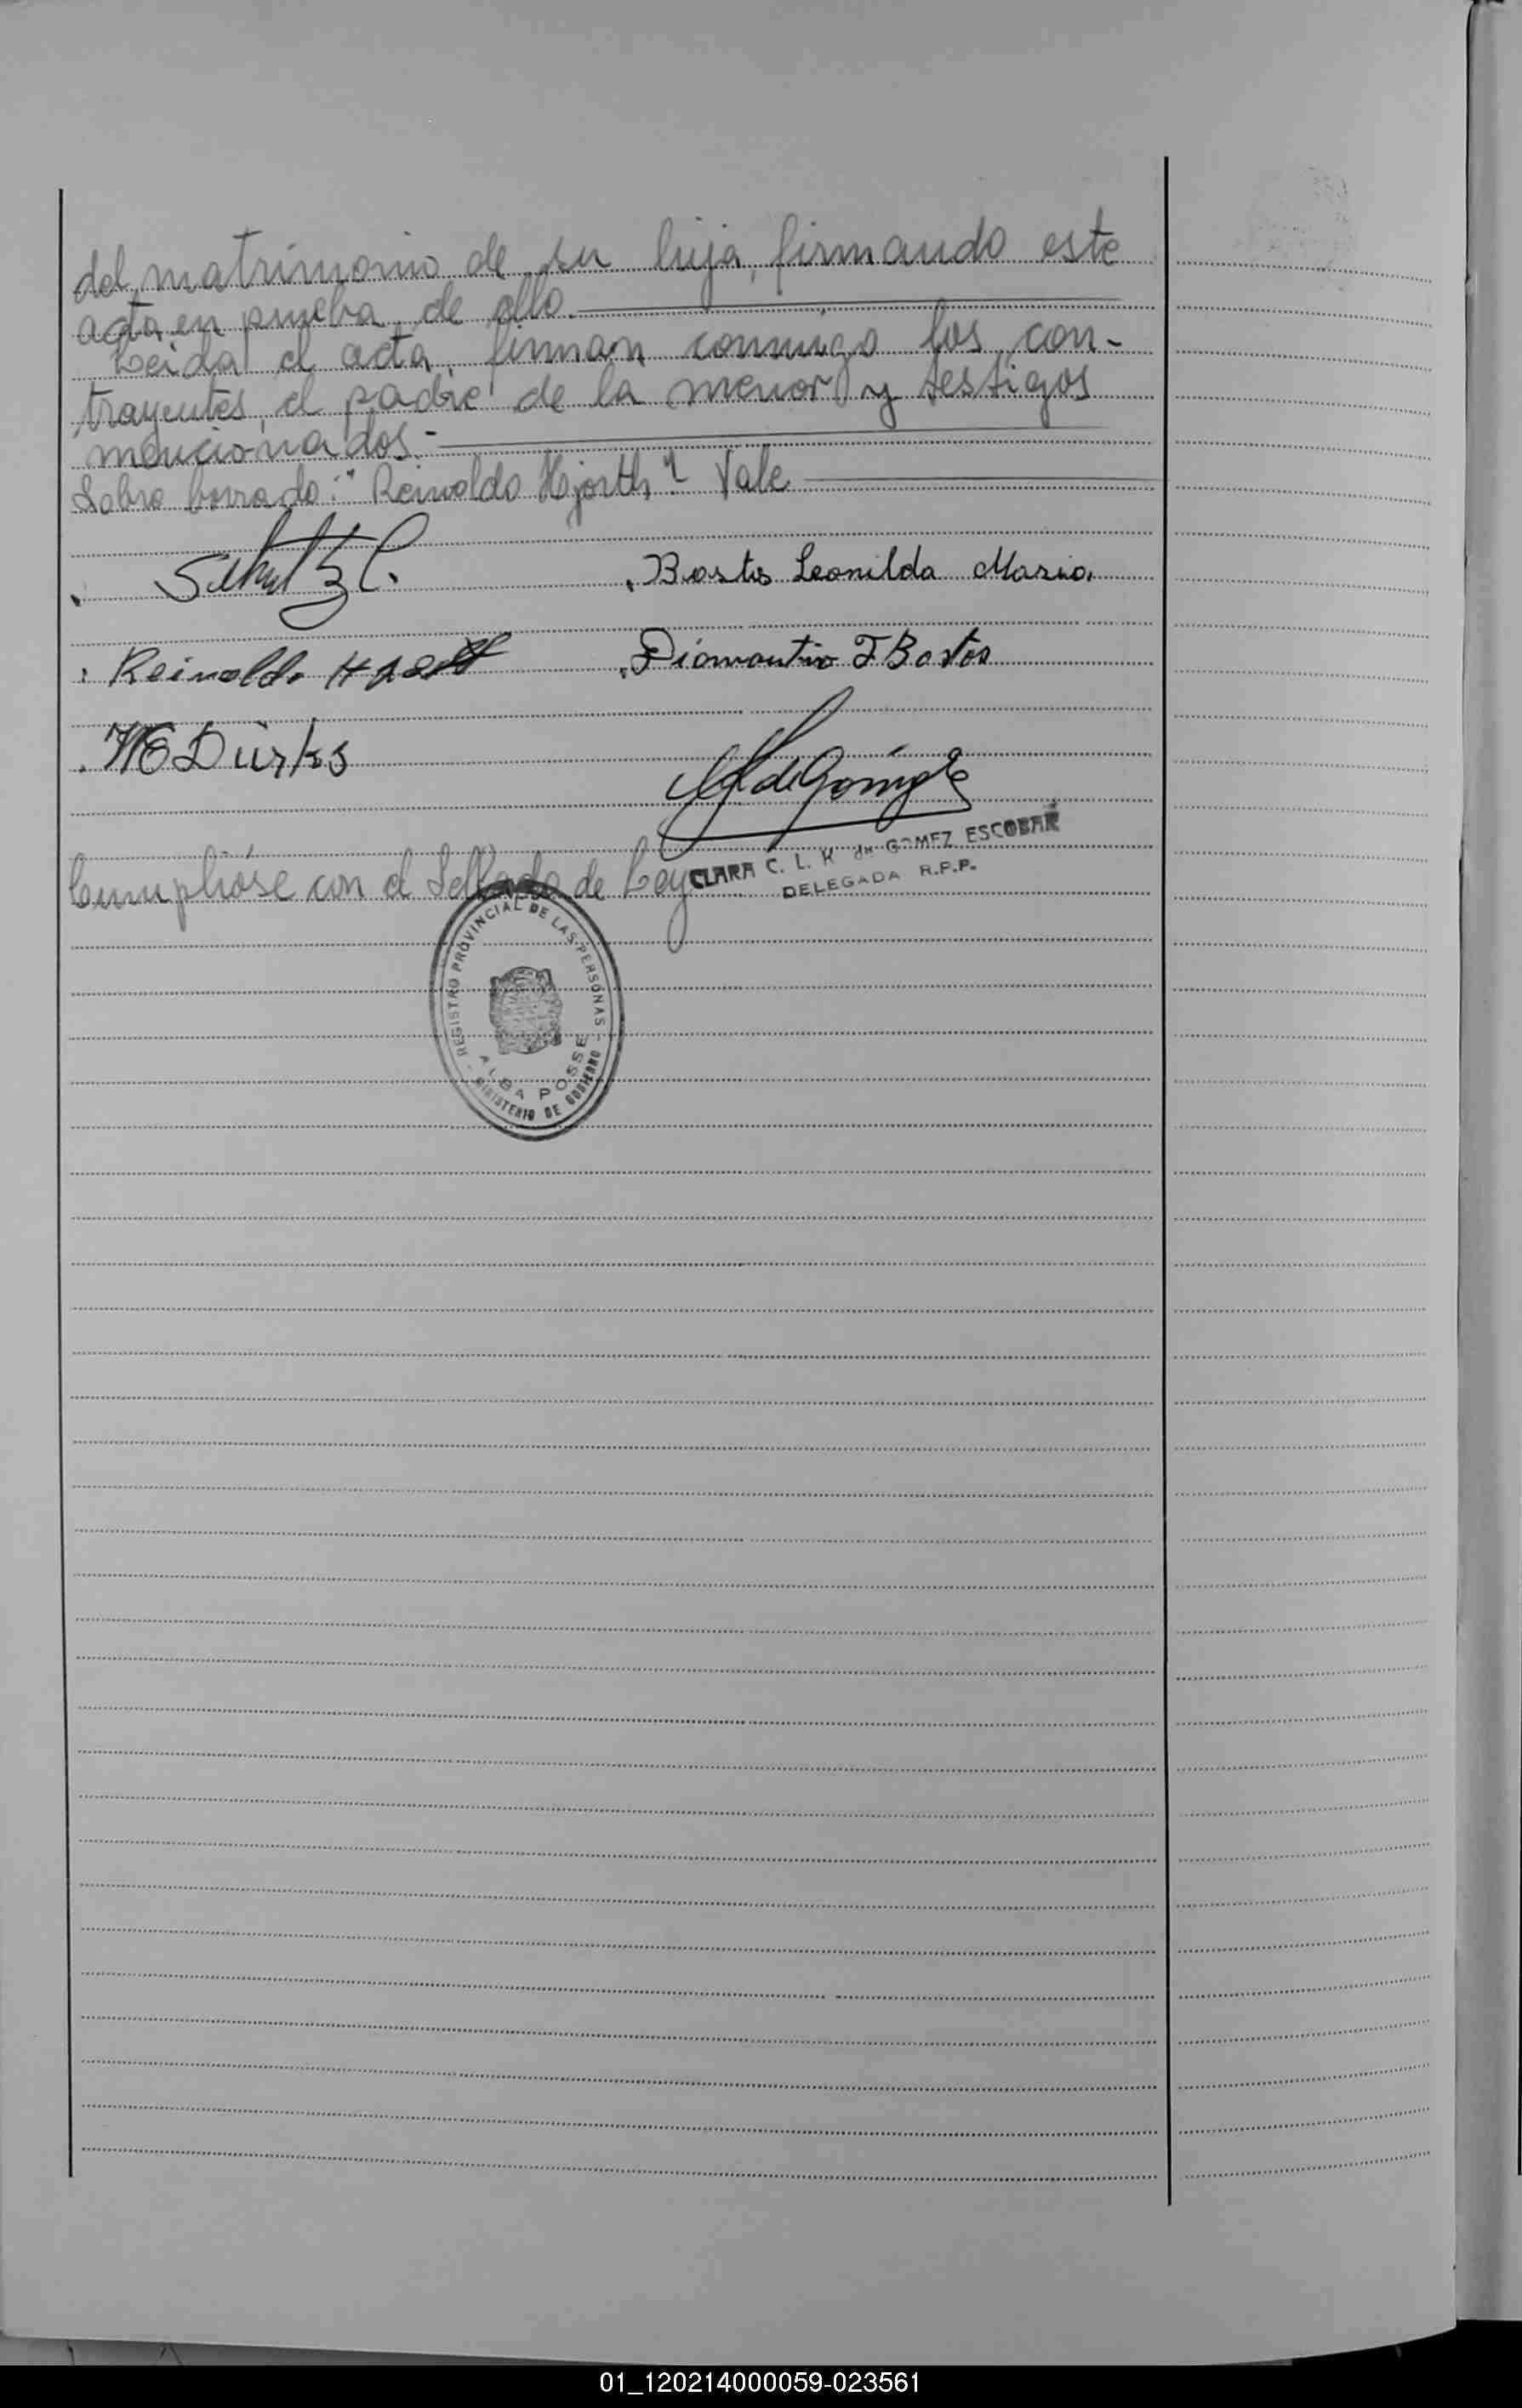 del matrimonio de su hija, firmando este
acta en prueba de ello.
Leida el acta, firman conmigo los con-
trayentes, el padre de la menor y testigos
mencionados.-
Sobre borrado: "Reinaldo Hjorth" Vale
Schultz C.
Bastos Leonilda Maria
Reinaldo
Diamantino F Bastos
CLARA C. L. K de GOMEZ ESCOBAR
DELEGADA R.P.P.
Cumpliose con el Sellado de Ley
REGISTRO PROVINCIAL DE LAS PERSONAS - MINISTERIO DE GOBIERNO -
ALBA POSSE
01_120214000059-023561